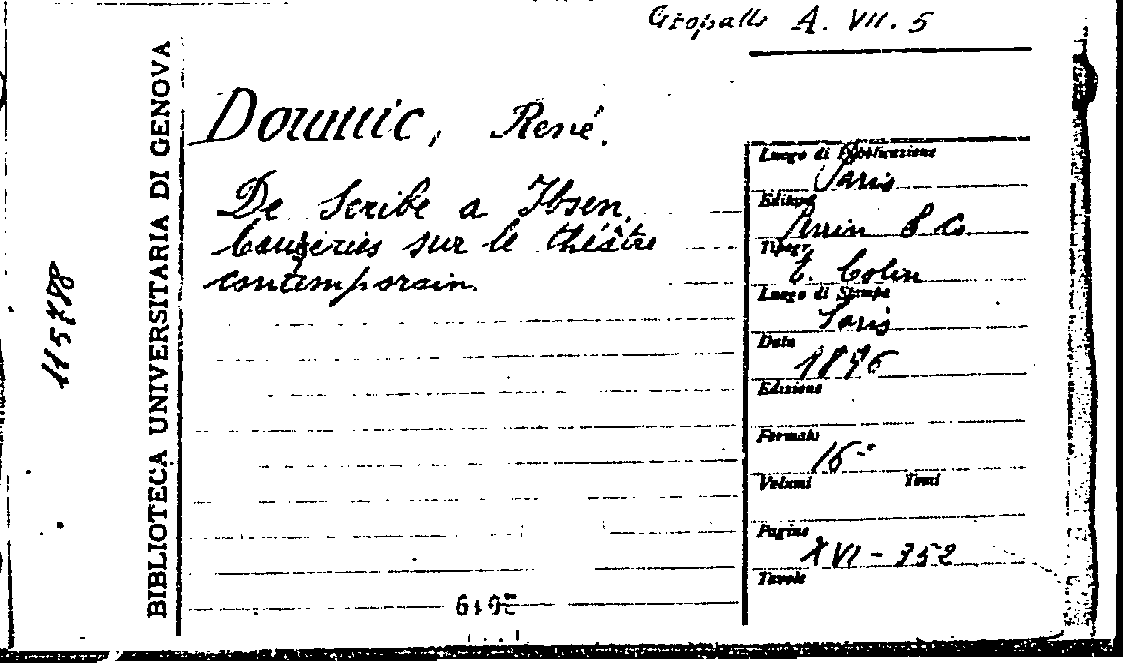 Gropallo A. VII. 5
BIBLIOTECA UNIVERSITARIA DI GENOVA
115788
Doumic, René.
De Scribe a Ibsen.
Causeries sur le théâtre
contemporain.
Luogo di Pubblicazione
Paris
Editore
Perrin & Co.
Tipogr.
E. Colin
Luogo di Stampa
Paris
Data
1896
Edizione
Formato
16°
Volumi Tomi
Pagine
XVI - 352
Tavole